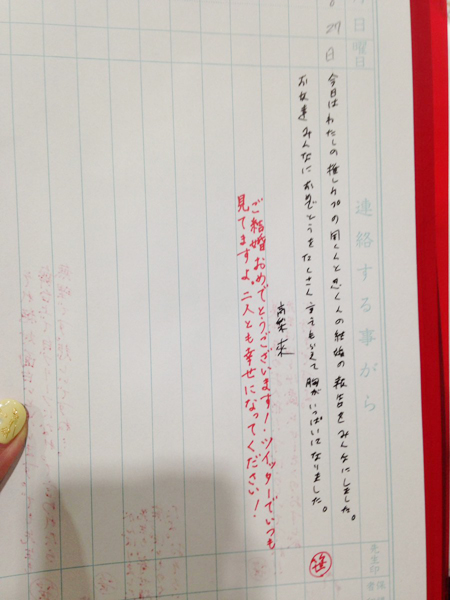 日
曜
日
27
日
連絡する事がら
今日はわたしの推しカプの周くんと忍くんの結婚の報告をみんなにしました。
お友達みんなにおめでとうをたくさん言ってもらえて胸がいっぱいになりました。
高柴 來
ご結婚おめでとうございます！ツイッターでいつも
見てますよ。二人とも幸せになってください！
先生印
笹